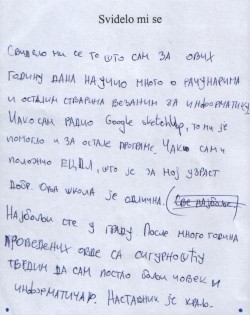 Svidelo mi se
Свидело ми се то што сам за ових
годину дана научио много о рачунарима
и осталим стварима везаним за информатику
Иако сам радио Google sketchUp, то ми је
помогло и за остале програме. Чак сам и
положио ЕЦДЛ, што је за мој узраст
добр. Ова школа је одлична.
Најбољи сте у граду После много година
проведених овде са сигурношћу
тврдим да сам постао бољи човек и
информатичар. Наставник је краљ.